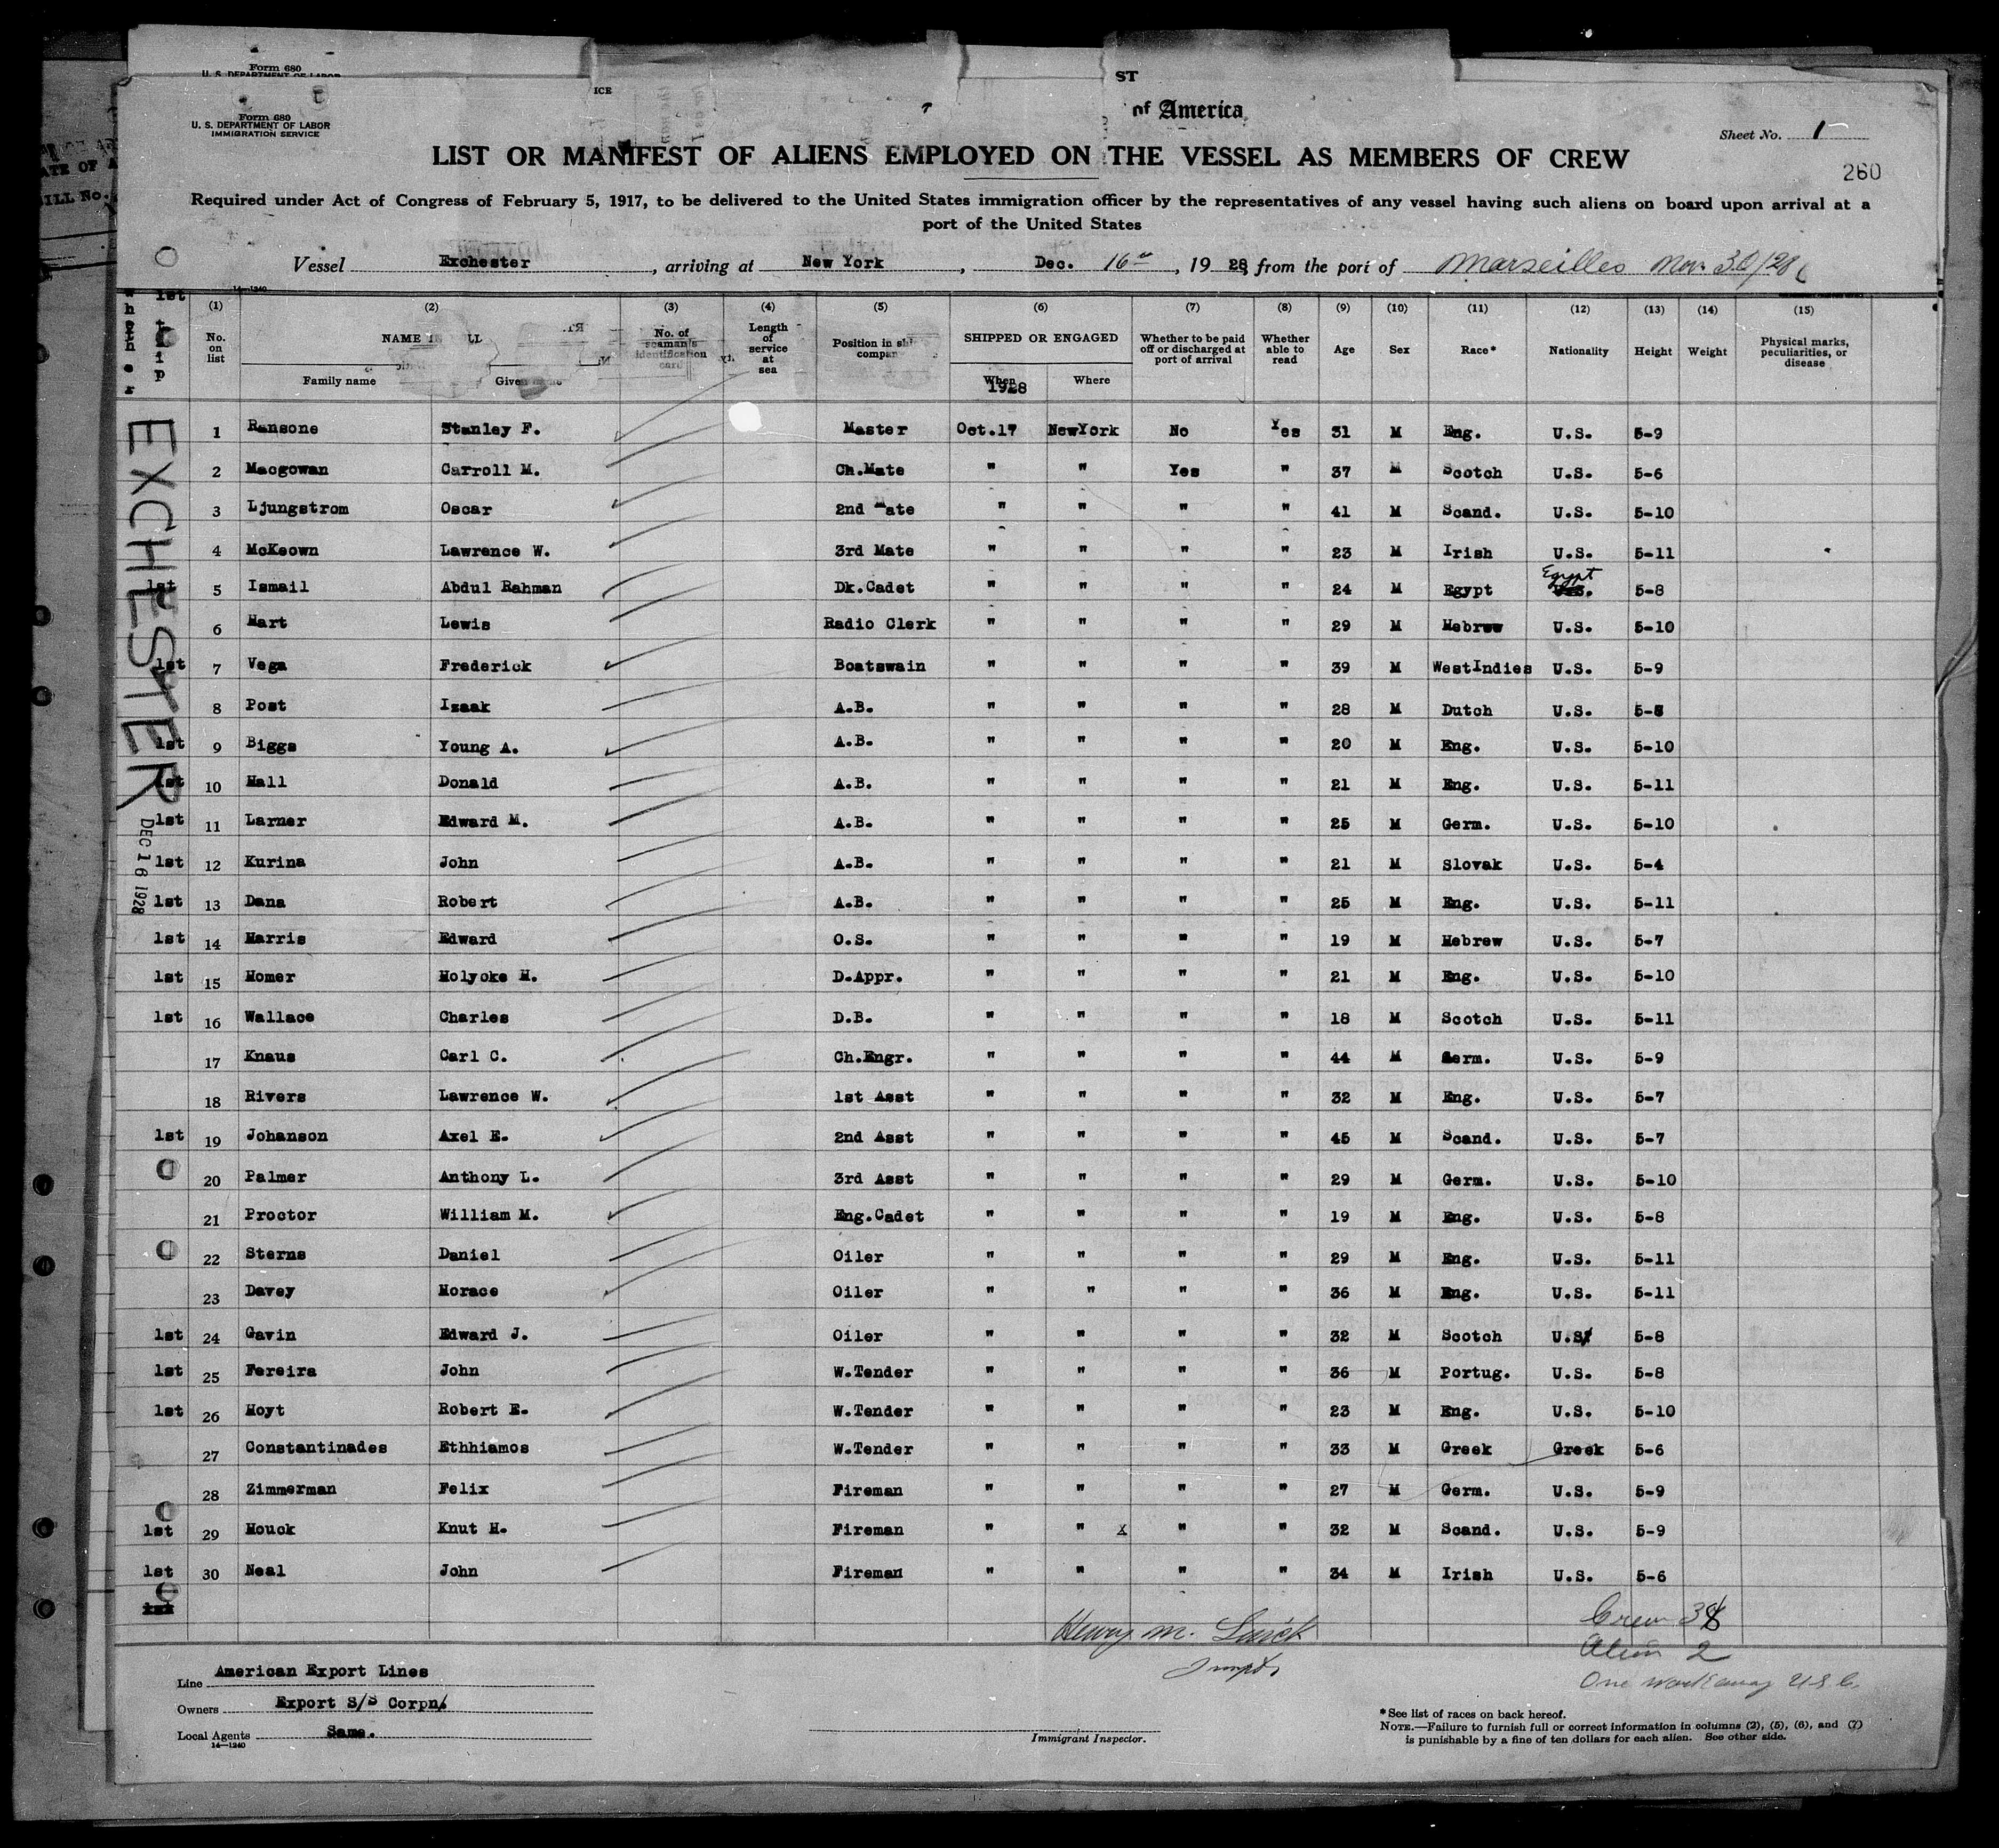 Form 680
U. S. DEPARTMENT OF LABOR
ICE
ST
Form 680
U. S. DEPARTMENT OF LABOR
IMMIGRATION SERVICE
of America
Sheet No. 1
260
LIST OR MANIFEST OF ALIENS EMPLOYED ON THE VESSEL AS MEMBERS OF CREW
Required under Act of Congress of February 5, 1917, to be delivered to the United States immigration officer by the representatives of any vessel having such aliens on board upon arrival at a
port of the United States
Vessel Exchester, arriving at New York, Dec. 16th, 1928 from the port of Marseilles Nov. 30/28
(1) (2) (3) (4) (5) (6) (7) (8) (9) (10) (11) (12) (13) (14) (15)
No. on list NAME IN LL No. of seaman's identification card Length of service at sea Position in shi compan SHIPPED OR ENGAGED Whether to be paid off or discharged at port of arrival Whether able to read Age Sex Race* Nationality Height Weight Physical marks, peculiarities, or disease
Family name Given name When 1928 Where
EXCHESTER
DEC 16 1928
1 Ransone Stanley F. Master Oct.17 NewYork No Yes 31 M Eng. U.S. 5-9
2 Macgowan Carroll M. Ch.Mate " " Yes " 37 M Scotch U.S. 5-6
3 Ljungstrom Oscar 2nd Mate " " " " 41 M Scand. U.S. 5-10
4 McKeown Lawrence W. 3rd Mate " " " " 23 M Irish U.S. 5-11
1st 5 Ismail Abdul Rahman Dk.Cadet " " " " 24 M Egypt Egypt U.S. 5-8
6 Hart Lewis Radio Clerk " " " " 29 M Hebrew U.S. 5-10
1st 7 Vega Frederick Boatswain " " " " 39 M WestIndies U.S. 5-9
8 Post Izaak A.B. " " " " 28 M Dutch U.S. 5-8
1st 9 Biggs Young A. A.B. " " " " 20 M Eng. U.S. 5-10
1st 10 Hall Donald A.B. " " " " 21 M Eng. U.S. 5-11
1st 11 Larner Edward M. A.B. " " " " 25 M Germ. U.S. 5-10
1st 12 Kurina John A.B. " " " " 21 M Slovak U.S. 5-4
1st 13 Dana Robert A.B. " " " " 25 M Eng. U.S. 5-11
1st 14 Harris Edward O.S. " " " " 19 M Hebrew U.S. 5-7
1st 15 Homer Holyoke H. D.Appr. " " " " 21 M Eng. U.S. 5-10
1st 16 Wallace Charles D.B. " " " " 18 M Scotch U.S. 5-11
17 Knaus Carl C. Ch.Engr. " " " " 44 M Germ. U.S. 5-9
18 Rivers Lawrence W. 1st Asst " " " " 32 M Eng. U.S. 5-7
1st 19 Johanson Axel E. 2nd Asst " " " " 45 M Scand. U.S. 5-7
20 Palmer Anthony L. 3rd Asst " " " " 29 M Germ. U.S. 5-10
21 Proctor William M. Eng.Cadet " " " " 19 M Eng. U.S. 5-8
22 Sterns Daniel Oiler " " " " 29 M Eng. U.S. 5-11
23 Davey Horace Oiler " " " " 36 M Eng. U.S. 5-11
1st 24 Gavin Edward J. Oiler " " " " 32 M Scotch U.S. 5-8
1st 25 Fereira John W.Tender " " " " 36 M Portug. U.S. 5-8
1st 26 Hoyt Robert E. W.Tender " " " " 23 M Eng. U.S. 5-10
27 Constantinades Ethhiamos W.Tender " " " " 33 M Greek Greek 5-6
28 Zimmerman Felix Fireman " " " " 27 M Germ. U.S. 5-9
1st 29 Houck Knut H. Fireman " " X " " 32 M Scand. U.S. 5-9
1st 30 Neal John Fireman " " " " 34 M Irish U.S. 5-6
Crew 38
Henry M.
Alien 2
One workaway U.S.C.
Line American Export Lines
Owners Export S/S Corpn.
Local Agents Same.
14—1240
Immigrant Inspector.
*See list of races on back hereof.
NOTE.—Failure to furnish full or correct information in columns (2), (5), (6), and (7)
is punishable by a fine of ten dollars for each alien. See other side.